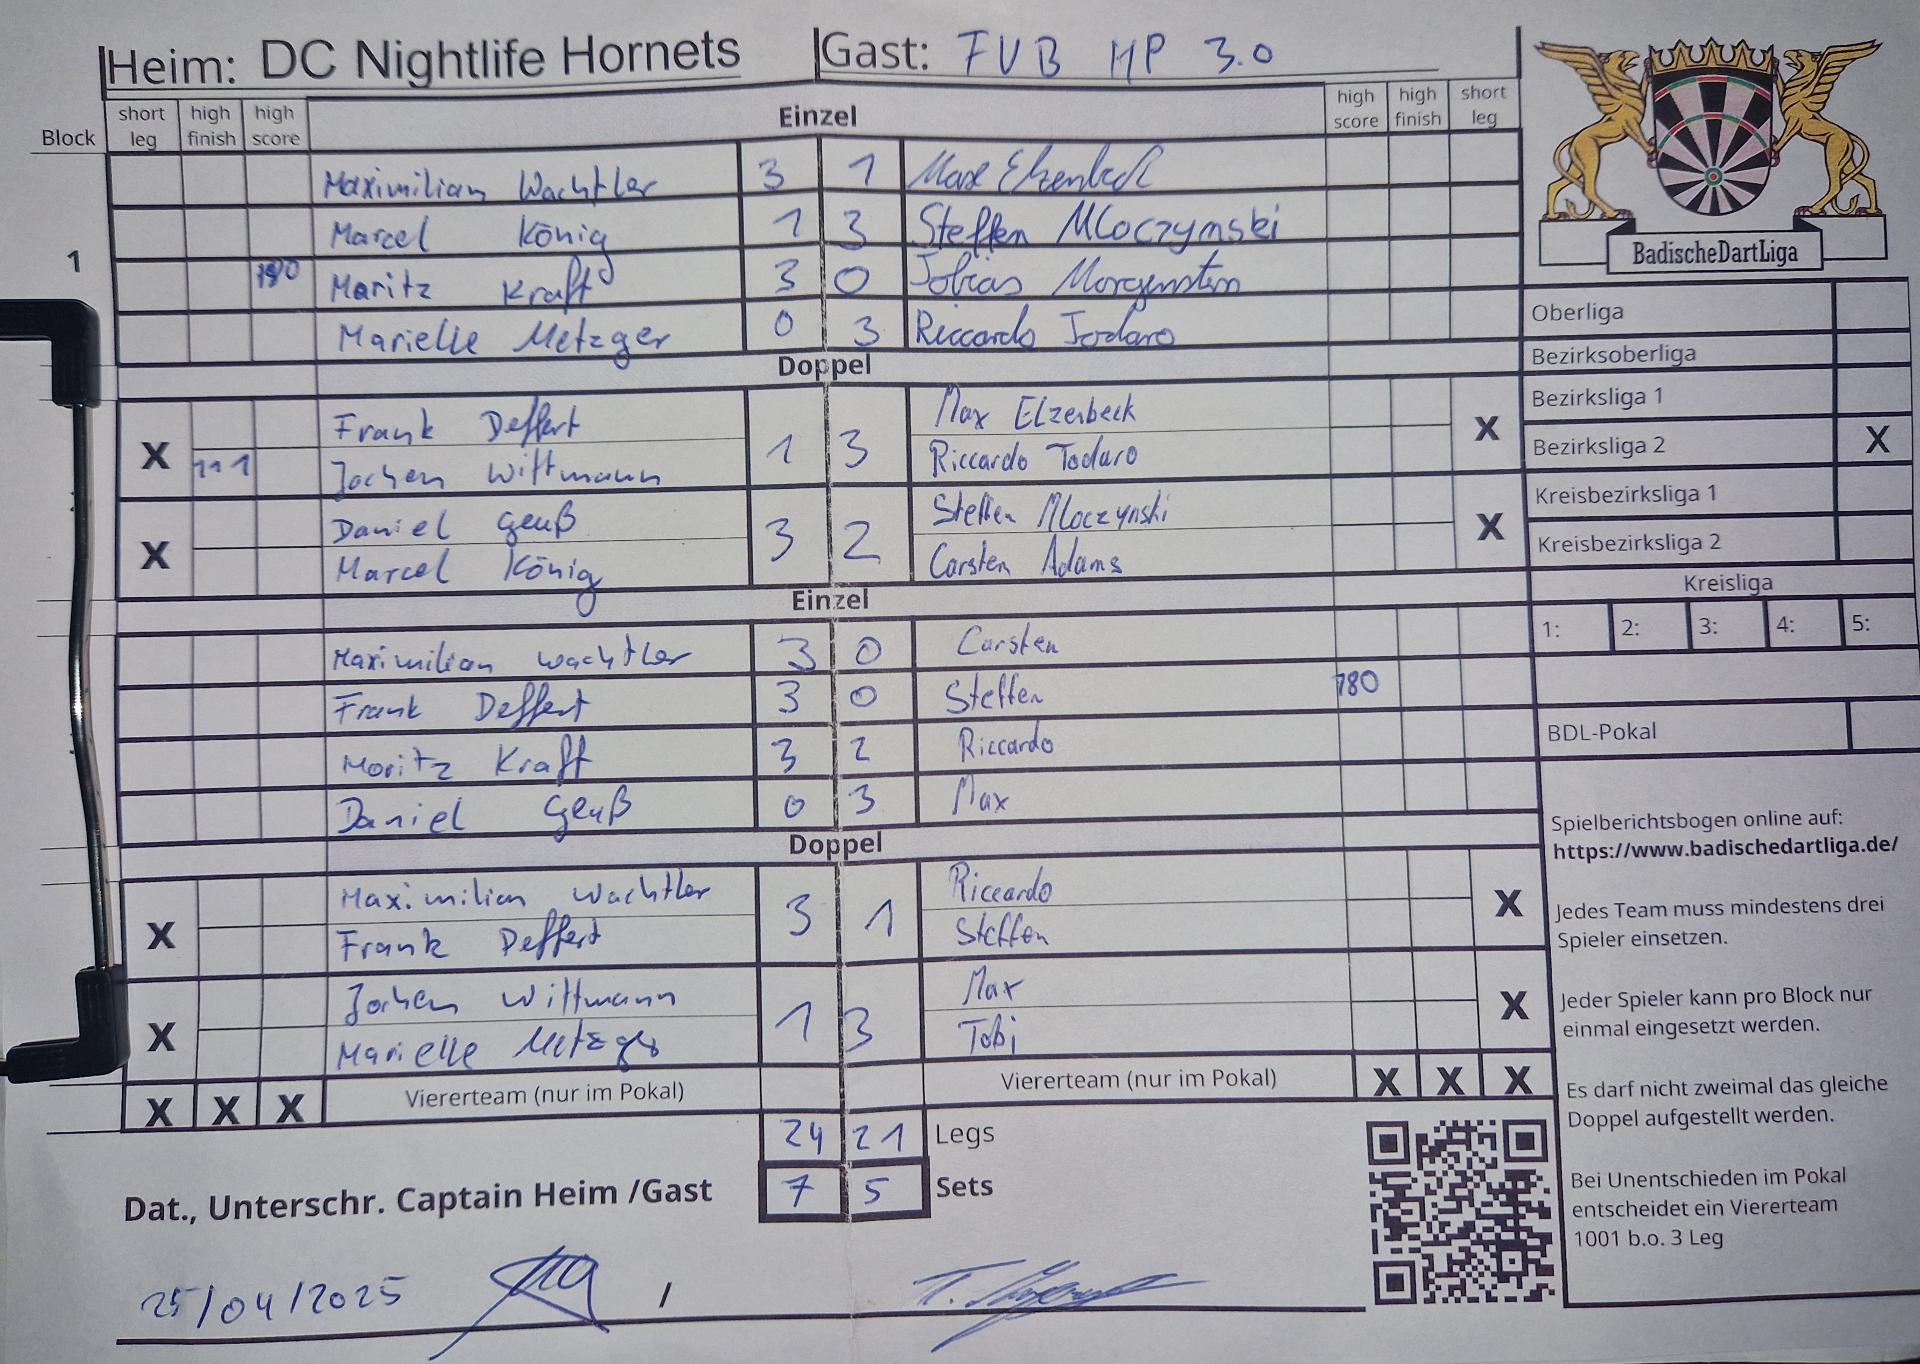 Heim: DC Nightlife Hornets Gast: FVB HP 3.0
Block short leg high finish high score Einzel high score high finish short leg
Maximilian Wachtler 3 1 Max Elzenbeck
Marcel König 1 3 Steffen Mloczynski
1 180 Moritz Kraft 3 0 Tobias Morgenstern
Marielle Metzger 0 3 Riccardo Todaro
Doppel
Frank Deffert Max Elzenbeck
X 1 3 X
111 Jochen Wittmann Riccardo Todaro
Daniel Geuß Steffen Mloczynski
X 3 2 X
Marcel König Carsten Adams
Einzel
Maximilian Wachtler 3 0 Carsten
Frank Deffert 3 0 Steffen 180
Moritz Kraft 3 2 Riccardo
Daniel Geuß 0 3 Max
Doppel
Maximilian Wachtler Riccardo
X 3 1 X
Frank Deffert Steffen
Jochen Wittmann Max
X 1 3 X
Marielle Metzger Tobi
X X X Viererteam (nur im Pokal) Viererteam (nur im Pokal) X X X
24 21 Legs
7 5 Sets
Dat., Unterschr. Captain Heim /Gast
25/04/2025 /
BadischeDartLiga
Oberliga
Bezirksoberliga
Bezirksliga 1
Bezirksliga 2 X
Kreisbezirksliga 1
Kreisbezirksliga 2
Kreisliga
1: 2: 3: 4: 5:
BDL-Pokal
Spielberichtsbogen online auf:
https://www.badischedartliga.de/
Jedes Team muss mindestens drei
Spieler einsetzen.
Jeder Spieler kann pro Block nur
einmal eingesetzt werden.
Es darf nicht zweimal das gleiche
Doppel aufgestellt werden.
Bei Unentschieden im Pokal
entscheidet ein Viererteam
1001 b.o. 3 Leg